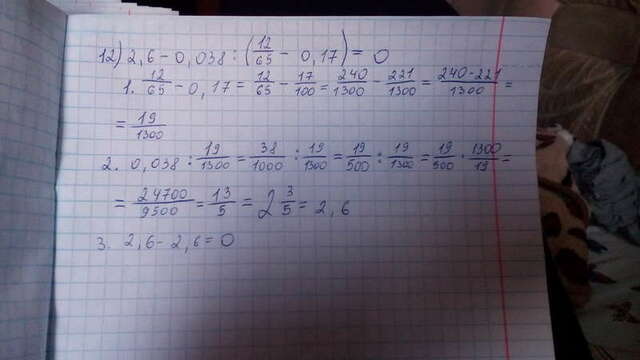 12) 2,6 - 0,038 : (12/65 - 0,17) = 0
1. 12/65 - 0,17 = 12/65 - 17/100 = 240/1300 - 221/1300 = 240-221/1300 =
= 19/1300
2. 0,038 : 19/1300 = 38/1000 : 19/1300 = 19/500 : 19/1300 = 19/500 · 1300/19 =
= 24700/9500 = 13/5 = 2 3/5 = 2,6
3. 2,6 - 2,6 = 0